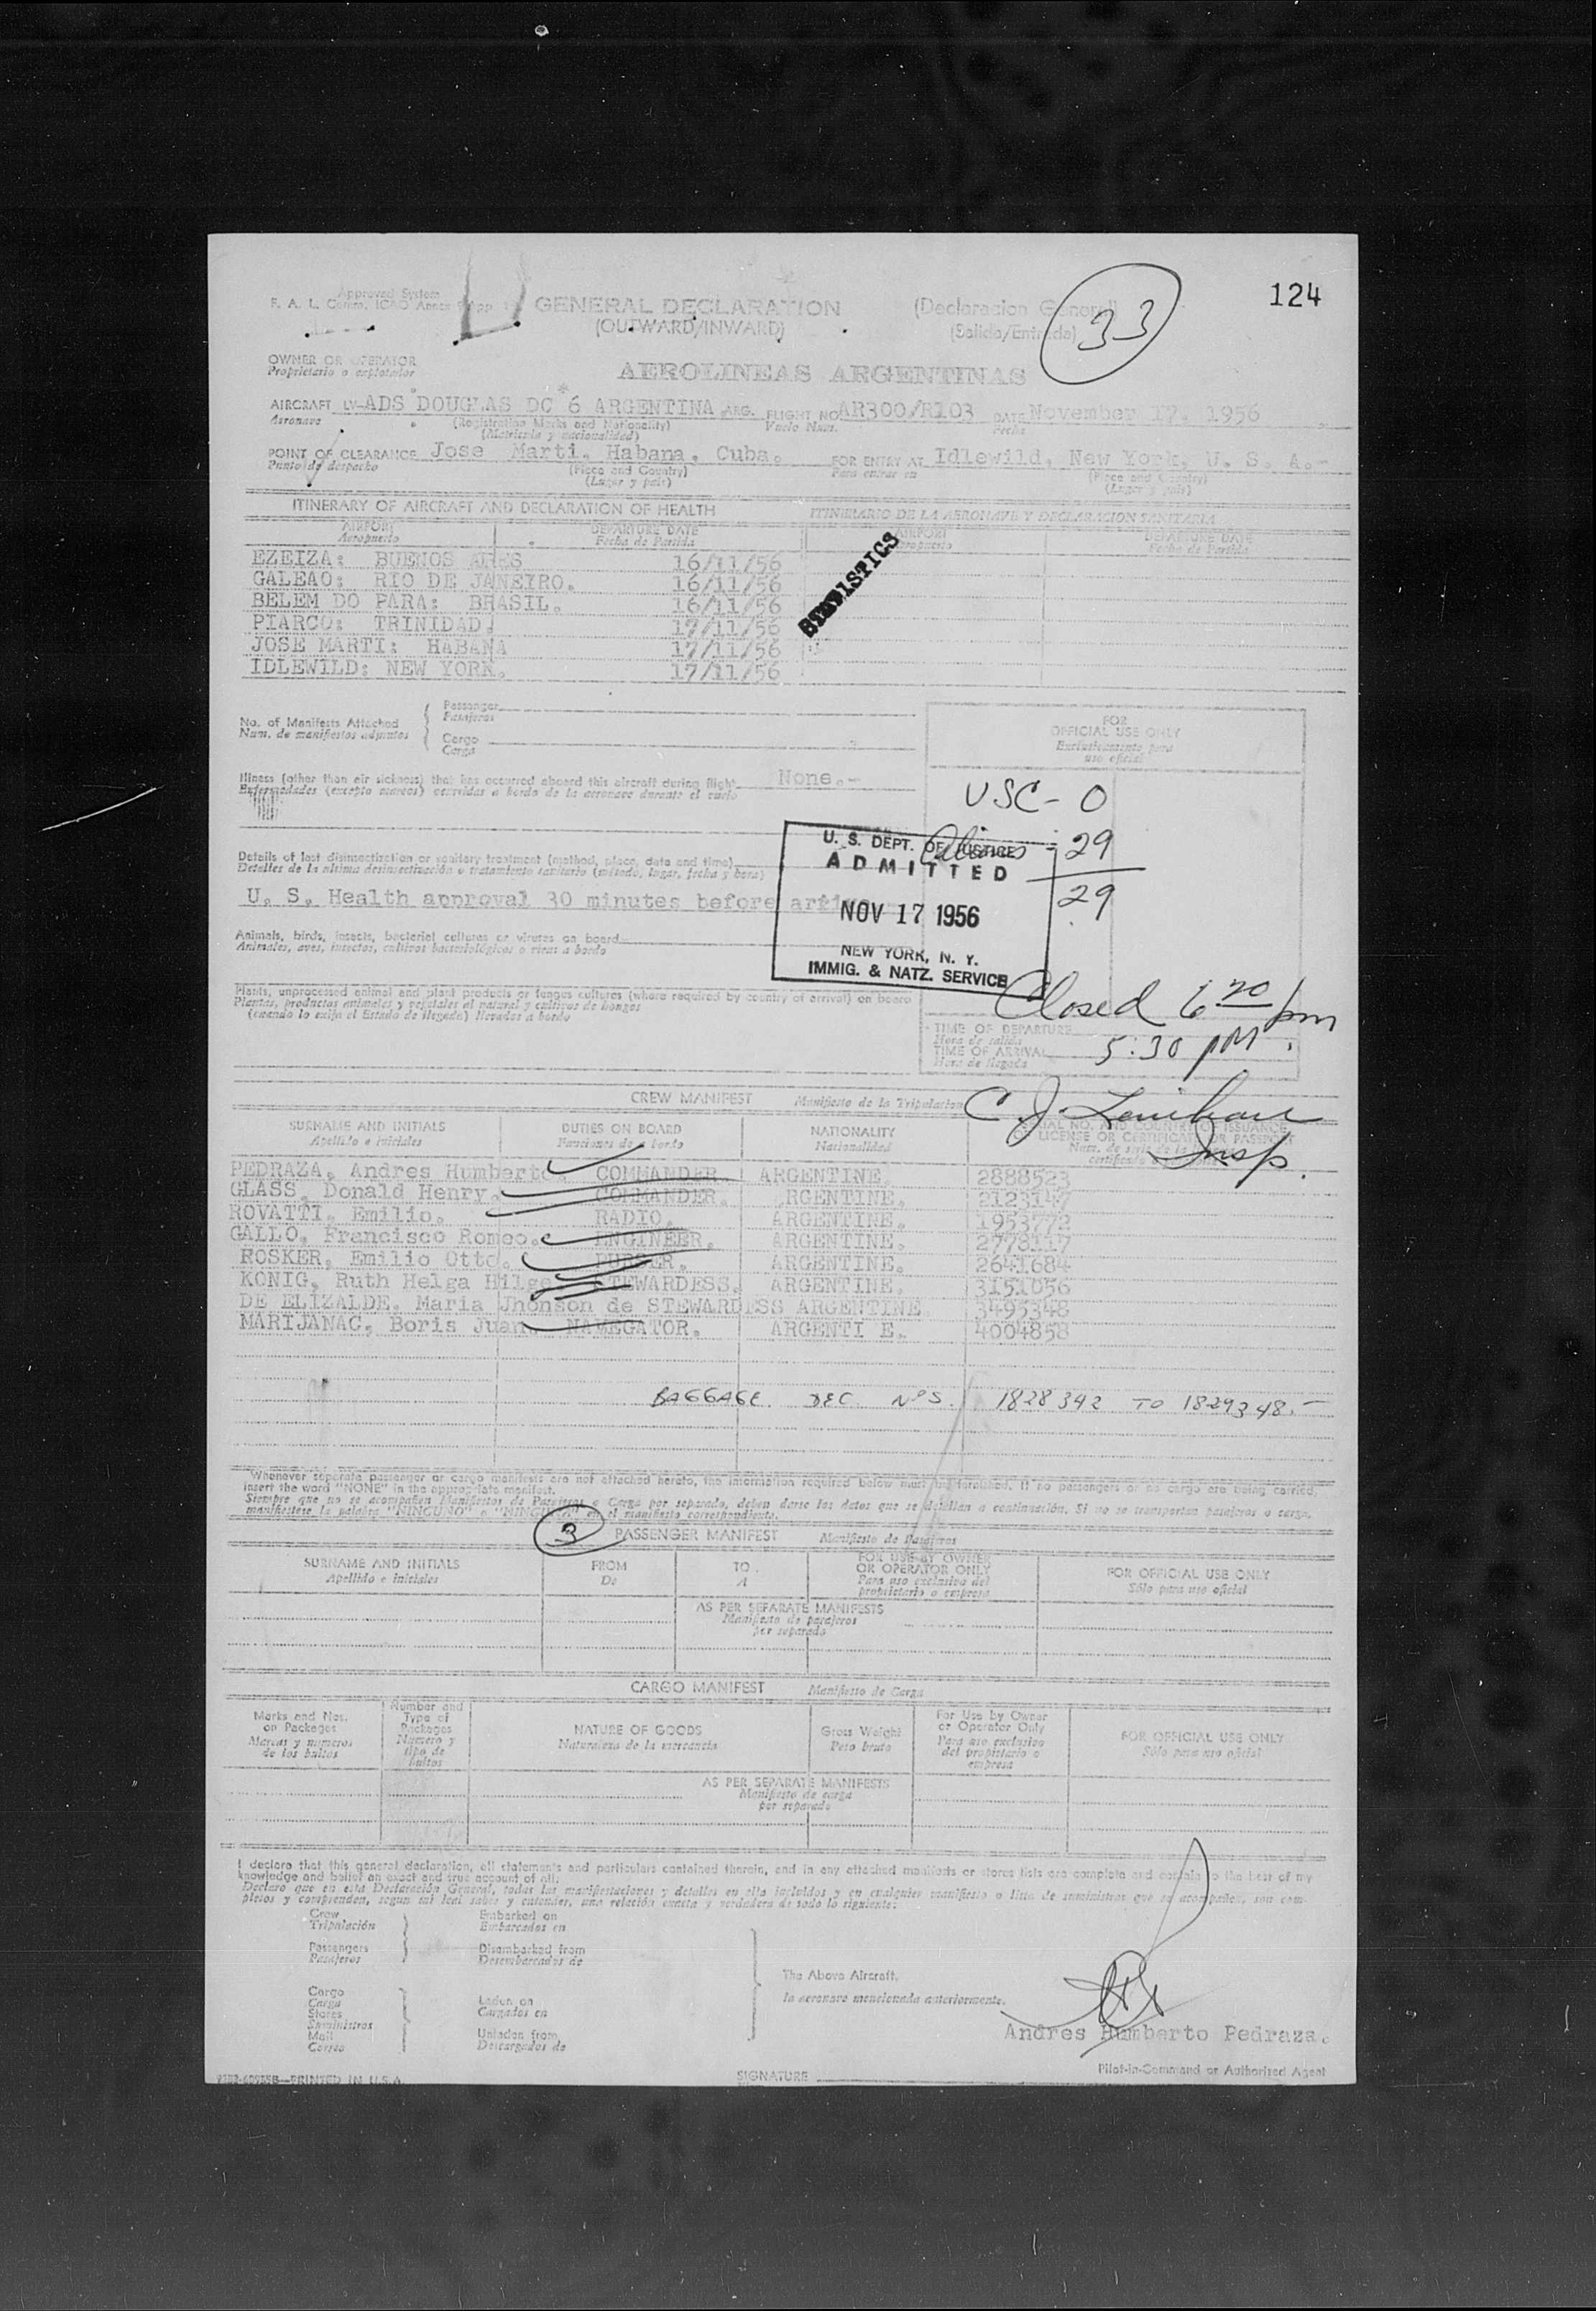 124
Approved System
GENERAL DECLARATION (Declaracion General)
(OUTWARD/INWARD) (Salida/Entrada)
33
OWNER OR OPERATOR
Proprietario o explotador
AEROLINEAS ARGENTINAS
AIRCRAFT LV-ADS DOUGLAS DC 6 ARGENTINA ARG. FLIGHT NO AR300/R103 DATE November 17. 1956
Aeronave (Registration Marks and Nationality) Vuelo Num. Fecha
(Matricula y nacionalidad)
POINT OF CLEARANCE Jose Marti. Habana. Cuba. FOR ENTRY AT Idlewild, New York, U. S. A.-
Punto de despacho (Place and Country) Para entrar en (Place and Country)
(Lugar y pais) (Lugar y pais)
ITINERARY OF AIRCRAFT AND DECLARATION OF HEALTH ITINERARIO DE LA AERONAVE Y DECLARACION SANITARIA
AIRPORT DEPARTURE DATE AIRPORT DEPARTURE DATE
Aeropuerto Fecha de Partida Aeropuerto Fecha de Partida
EZEIZA: BUENOS ARES 16/11/56
GALEAO: RIO DE JANEIRO. 16/11/56
BELEM DO PARA: BRASIL. 16/11/56
PIARCO: TRINIDAD. 17/11/56
JOSE MARTI: HABANA 17/11/56
IDLEWILD: NEW YORK. 17/11/56
No. of Manifests Attached
Num. de manifiestos adjuntos
Passenger
Pasajeros
Cargo
Carga
FOR
OFFICIAL USE ONLY
Exclusivamente para
uso oficial
Illness (other than air sickness) that has occurred aboard this aircraft during flight None.-
Enfermedades (excepto mareos) ocurridas a bordo de la aeronave durante el vuelo
USC- 0
Aliens 29
29
U. S. DEPT. OF JUSTICE
ADMITTED
NOV 17 1956
NEW YORK, N. Y.
IMMIG. & NATZ. SERVICE
Details of last disinsectization or sanitary treatment (method, place, date and time)
Detalles de la ultima desinsectización o tratamiento sanitario (método, lugar, fecha y hora)
U. S. Health approval 30 minutes before
Animals, birds, insects, bacterial cultures or viruses on board
Animales, aves, insectos, cultivos bacteriológicos o virus a bordo
Plants, unprocessed animal and plant products or fungus cultures (where required by country of arrival) on board
(cuando lo exija el Estado de llegada) llevados a bordo
Closed 6 20 pm
TIME OF DEPARTURE
Hora de salida
TIME OF ARRIVAL 5:30 PM
Hora de llegada
CREW MANIFEST Manifiesto de la Tripulacion
Insp.
SURNAME AND INITIALS DUTIES ON BOARD NATIONALITY
Apellido e iniciales Funciones de a bordo Nacionalidad
PEDRAZA, Andres Humberto. COMMANDER. ARGENTINE. 2888523
GLASS, Donald Henry. COMMANDER. RGENTINE. 2123147
ROVATTI, Emilio. RADIO. ARGENTINE. 1953772
GALLO, Francisco Romeo. ENGINEER. ARGENTINE. 2778117
ROSKER, Emilio Otto. PURSER. ARGENTINE. 2641684
KONIG, Ruth Helga Hilge STEWARDESS. ARGENTINE. 3151056
DE ELIZALDE, Maria Jhonson de STEWARDESS ARGENTINE 3495348
MARIJANAC, Boris Juan. NAVEGATOR. ARGENTI E. 4004858
BAGGAGE. DEC. NºS. 1828342 TO 1829348.-
Whenever separate passenger or cargo manifests are not attached hereto, the information required below must be furnished. If no passengers or no cargo are being carried,
insert the word "NONE" in the appropriate manifest.
Siempre que no se acompañen Manifiestos de Pasajeros o Carga por separado, deben darse los datos que se detallan a continuación. Si no se transportan pasajeros o carga,
manifiestese la palabra "NINGUNO" o "NINGUNA" en el manifiesto correspondiente.
3
PASSENGER MANIFEST Manifiesto de Pasajeros
SURNAME AND INITIALS FROM TO FOR USE BY OWNER OR OPERATOR ONLY FOR OFFICIAL USE ONLY
Apellido e iniciales De A Para uso exclusivo del propietario o empresa Sólo para uso oficial
AS PER SEPARATE MANIFESTS
Manifiesto de pasajeros
por separado
CARGO MANIFEST Manifiesto de Carga
Marks and Nos. on Packages Number and Type of Packages NATURE OF GOODS Gross Weight For Use by Owner or Operator Only FOR OFFICIAL USE ONLY
Marcas y numeros de los bultos Numero y tipo de bultos Naturaleza de la mercancia Peso bruto Para uso exclusivo del propietario o empresa Sólo para uso oficial
AS PER SEPARATE MANIFESTS
Manifiesto de carga
por separado
I declare that this general declaration, all statements and particulars contained therein, and in any attached manifests or stores lists are complete and contain to the best of my
knowledge and belief an exact and true account of all:
Declaro que en esta Declaración General, todas las manifestaciones y detalles en ella incluidos y en cualquier manifiesto o lista de suministros que se acompañen, son com-
pletos y comprenden, segun mi leal saber y entender, una relación exacta y verdadera de todo lo siguiente:
Crew Embarked on
Tripulación Embarcados en
Passengers Disembarked from
Pasajeros Desembarcados de
The Above Aircraft.
la aeronave mencionada anteriormente.
Cargo
Carga Laden on
Stores Cargados en
Suministros
Mail Unladen from
Correo Descargados de
Andres Humberto Pedraza.
Pilot-in-Command or Authorised Agent
SIGNATURE
PRINTED IN U.S.A.